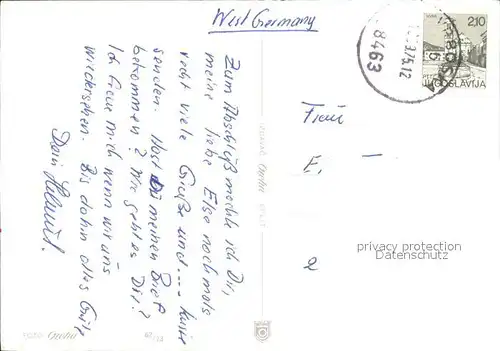 West Germany
Zum Abschluß möchte ich Dir,
meine liebe Else nochmals
recht viele Grüße und .... Küsse
senden. Hast Du meinen Brief
bekommen? Wie geht es Dir?
Ich freue mich wenn wir uns
wiedersehen. Bis dahin alles Gute
Dein Helmut.
8463
9.75.12
2,10
JUGOSLAVIJA
Frau
E. —
2
privacy protection
Datenschutz